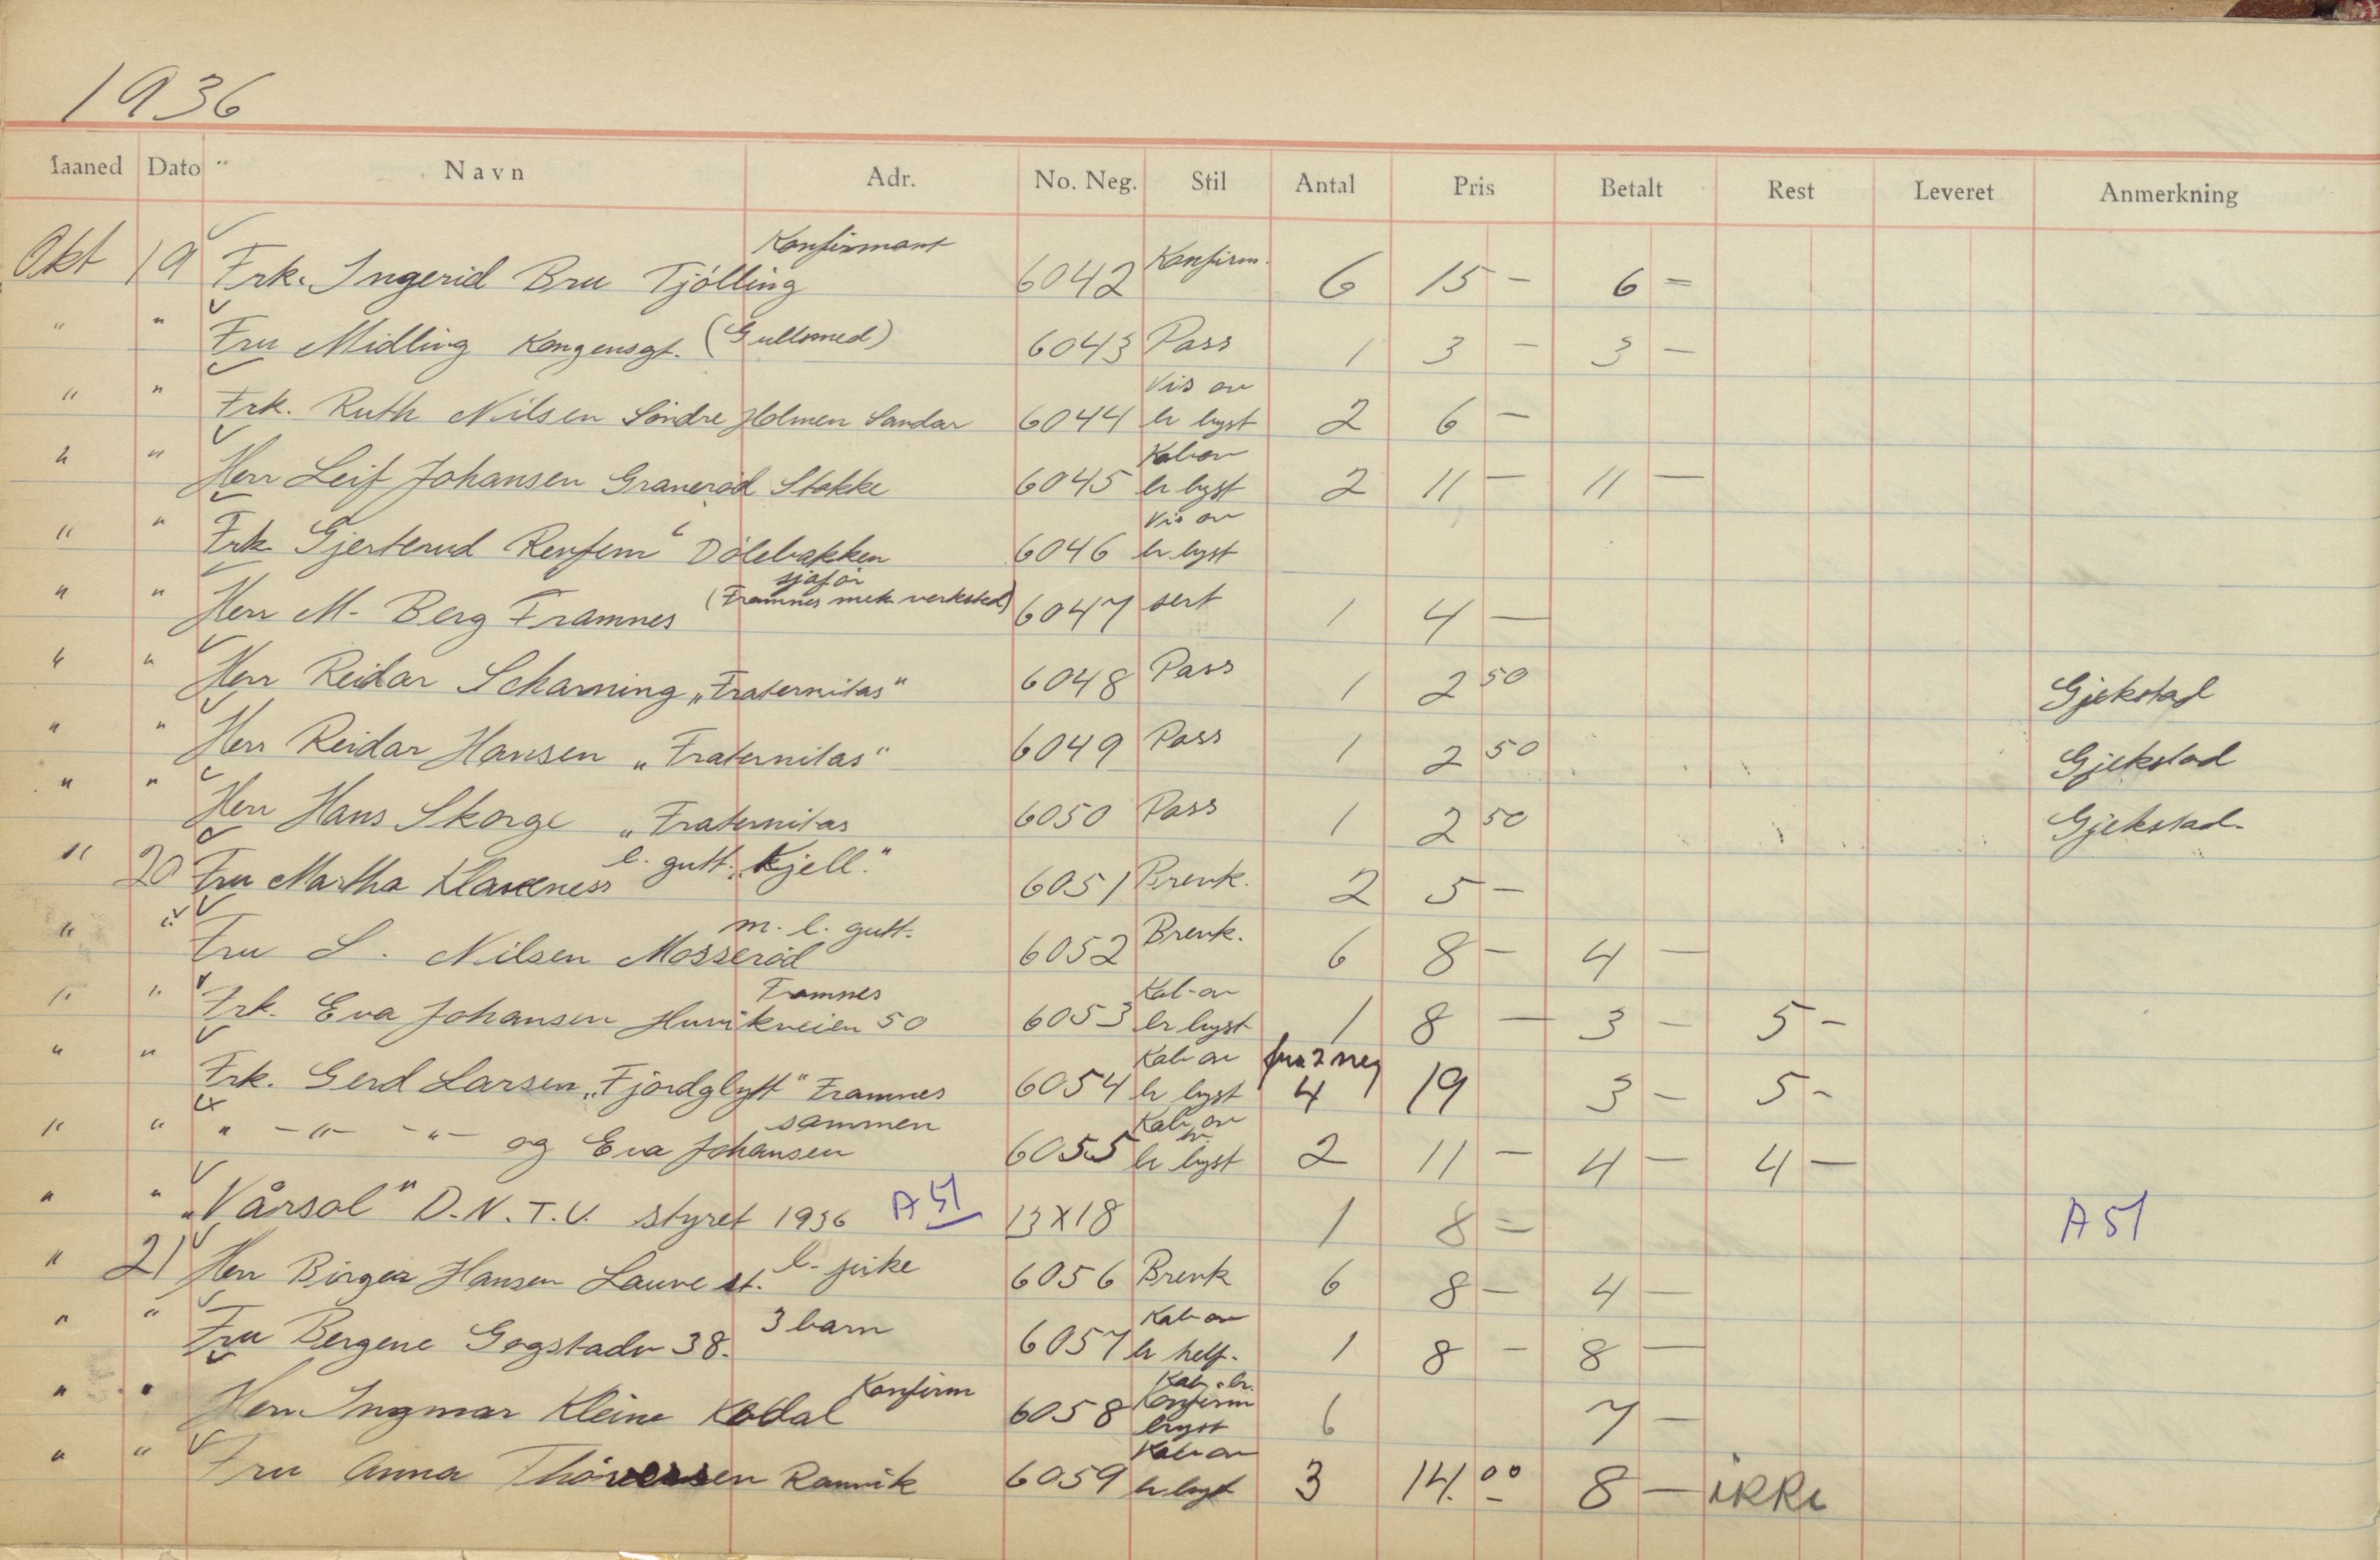 1936
Maaned Dato " Navn Adr. No. Neg. Stil Antal Pris Betalt Rest Leveret Anmerkning
Konfirmant
Okt 19 Frk. Ingerid Bru Tjölling 6042 Konfirm. 6 15 - 6 =
" " Fru Midling Kongensgt. (Gullsmed) 6043 Pass 1 3 - 3 -
Vis av
" " Frk. Ruth Nilsen Söndre Holmen Sandar 6044 br bryst 2 6 -
Kab av
" " Herr Leif Johansen Graneröd Stokke 6045 br bryst 2 11 - 11 -
Vis av
" " Frk. Gjerterud Dölebakken 6046 br bryst
sjåför
" " Herr M. Berg Framnes (Framnes mek verksted) 6047 sert 1 4 -
" " Herr Reidar Scharning „Fraternitas" 6048 Pass 1 2 50 Gjekstad
" " Herr Reidar Hansen „Fraternitas" 6049 Pass 1 2 50 Gjekstad
" " Herr Hans Skorge „Fraternitas 6050 Pass 1 2 50 Gjekstad-
" 20 Fru Martha Klaveness l. gutt „Kjell." 6051 Brevk. 2 5 -
m. l. gutt.
" " Fru S. Nilsen Mosseröd 6052 Brevk. 6 8 - 4 -
Framnes Kab-av
" " Frk. Eva Johansen Huvikveien 50 6053 br bryst 1 8 - 3 - 5 -
Kab av fra 2 neg
" " Frk. Gerd Larsen „Fjordglytt" Framnes 6054 br bryst 4 19 3 - 5 -
sammen Kab av
br.
" " " -"- -"- og Eva Johansen 6055 br bryst 2 11 - 4 - 4 -
" " „Vårsol" D.N.T.U. styret 1936 A 51 13X18 1 8 = A 51
" 21 Herr Birger Hansen Lauve st. l. pike 6056 Brevk 6 8 - 4 -
3 barn Kab av
" " Fru Bergene Gogstadv 38. 6057 br helf. 1 8 - 8 -
Konfirm Kab. br.
Konfirm
" " Herr Ingmar Kleine Kodal 6058 bryst 6 7 -
Kab av
" " Fru Anna Thöversen Ranvik 6059 br bryst 3 14.00 8 - ikke